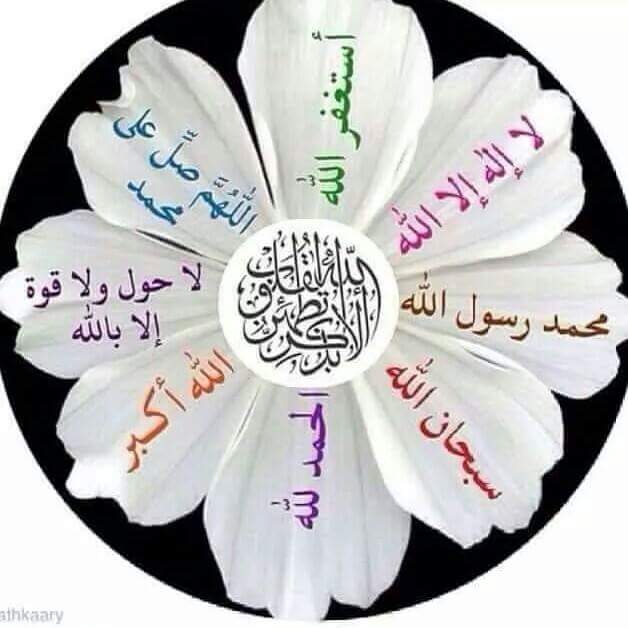 أستغفر الله
لا إله إلا الله
محمد رسول الله
سبحان الله
الحمد لله
الله أكبر
لا حول ولا قوة
إلا بالله
اللَّهُمَّ صَلِّ على
محمد
ألا بذكر الله تطمئن القلوب
athkaary